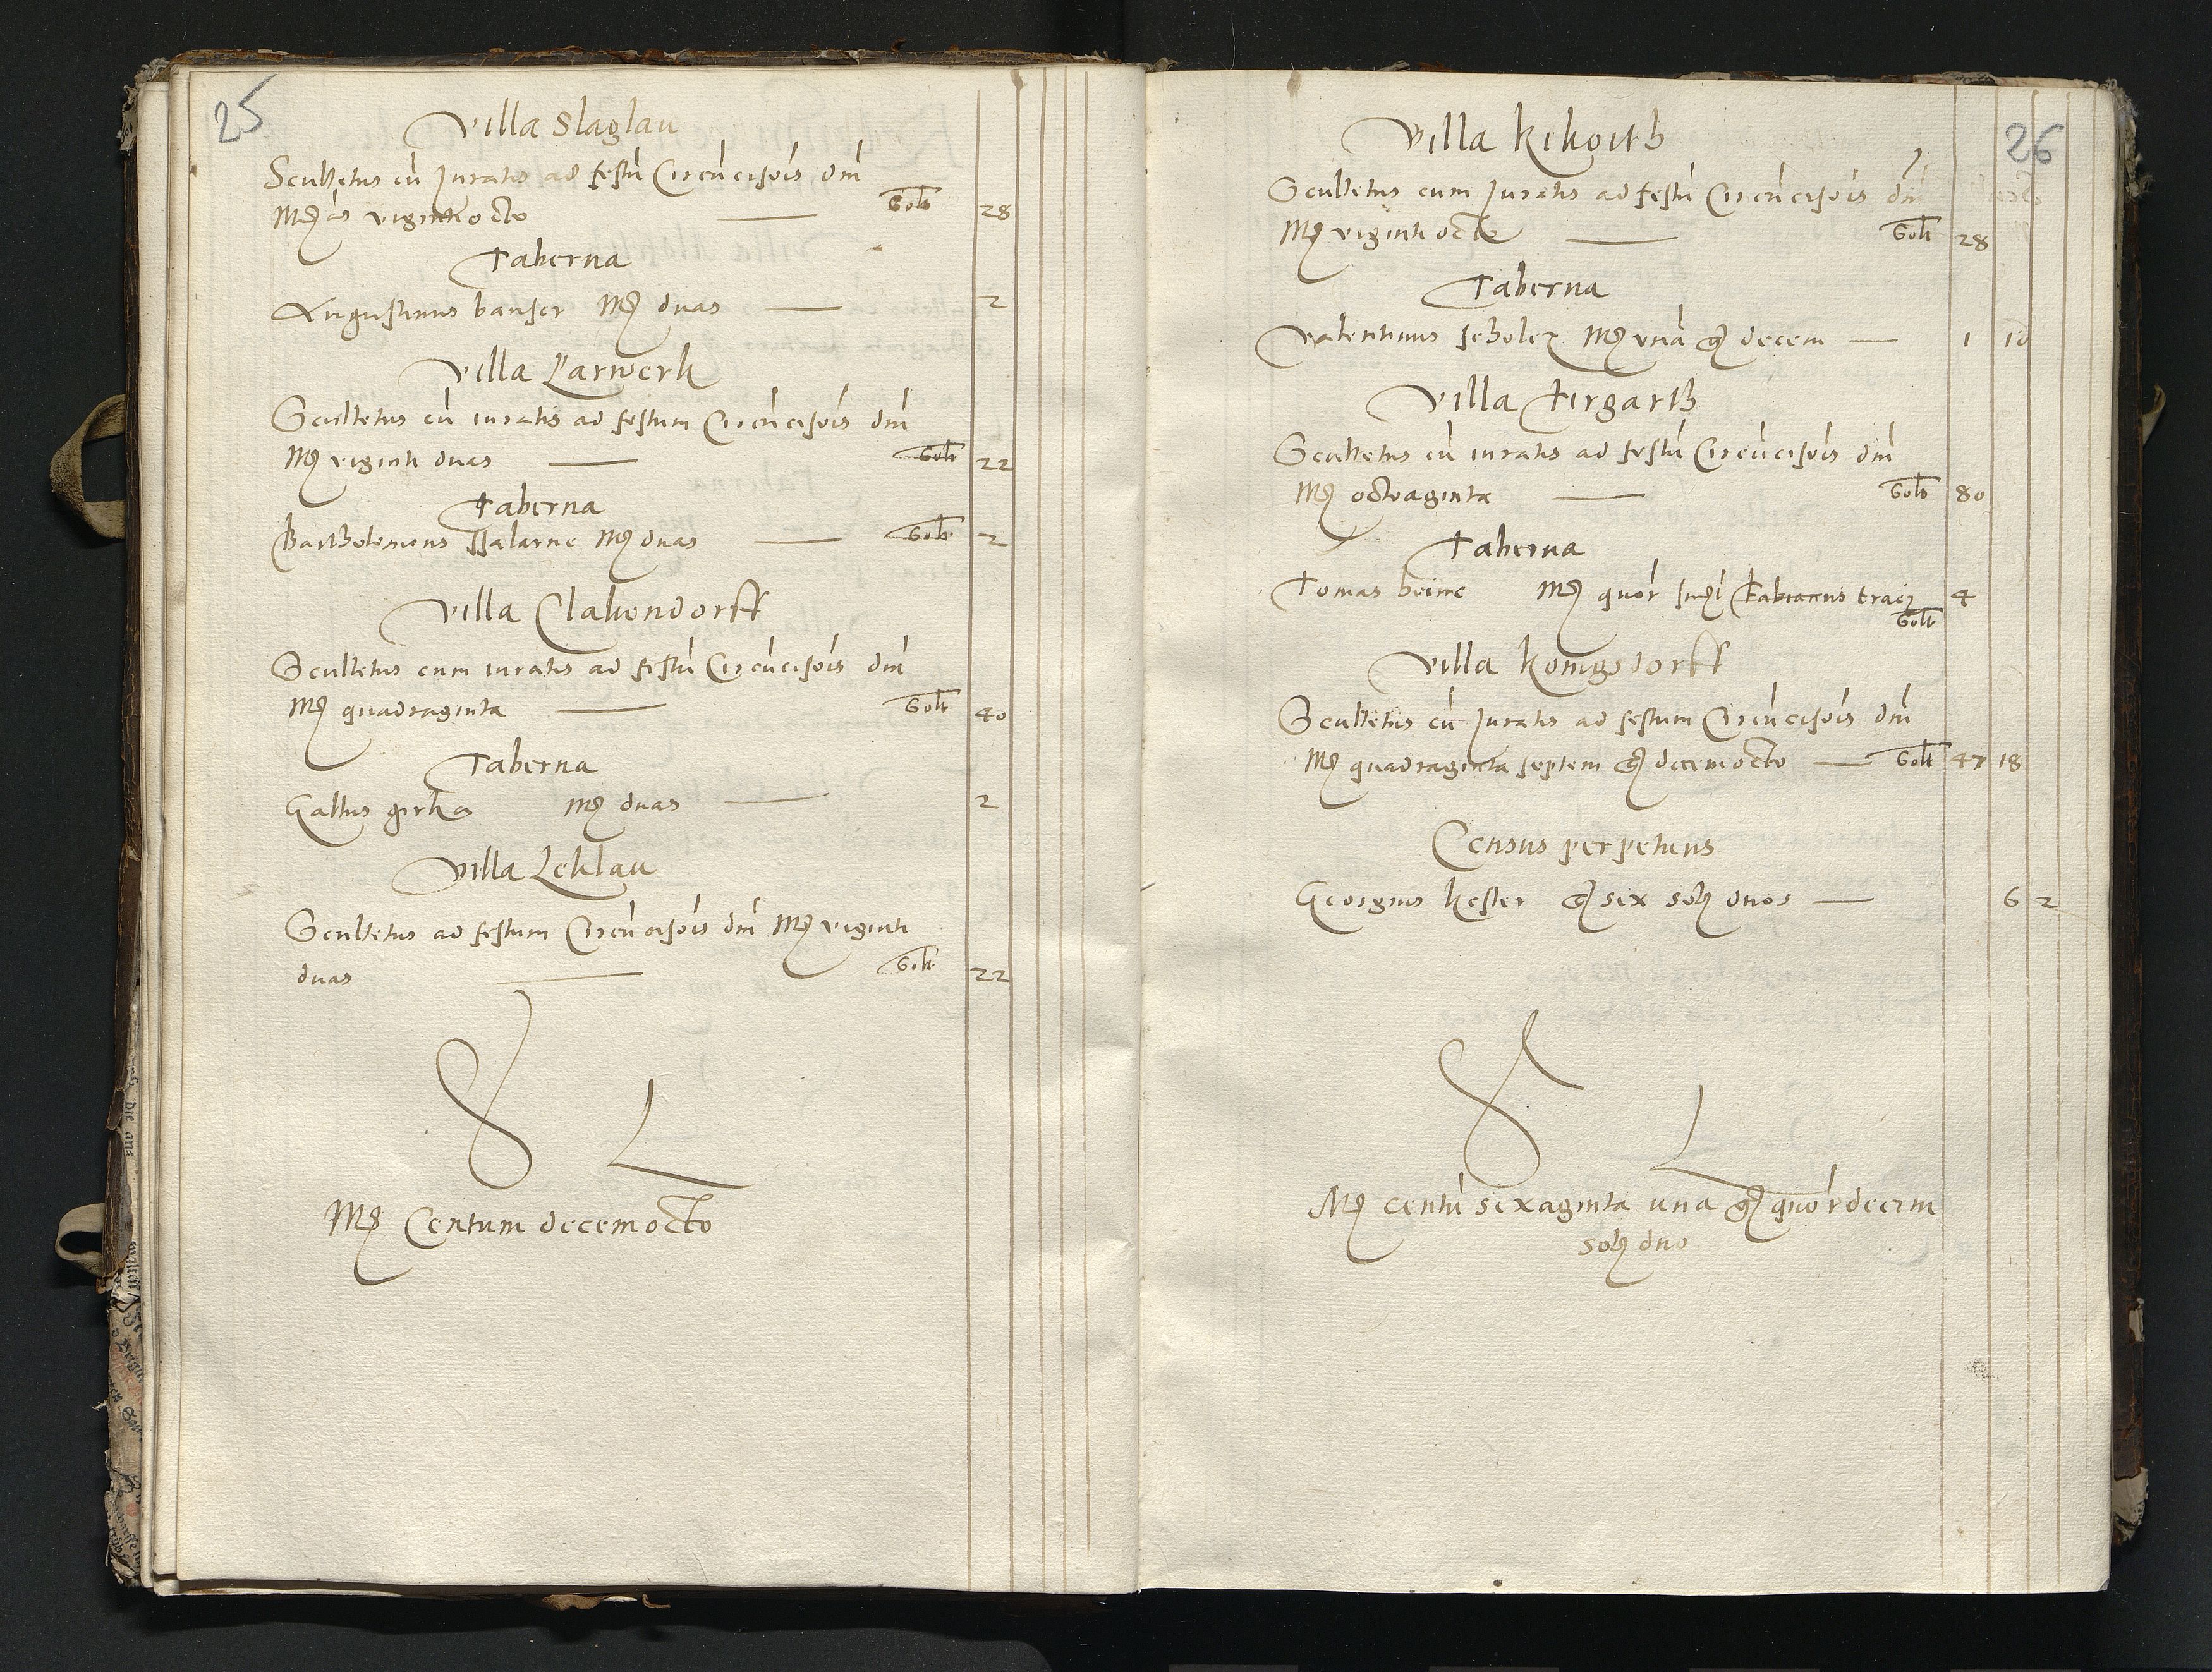 25
Villa Slaglau
Scultetus cū Juratis ad festū Circūcisois dm̄
Mg̃ viginti octo — Solt 28
Taberna
Augustinus banser Mg̃ duas — 2
Villa Larwerk
Scultetus cū iuratis ad festum Circūcisois dm̄
Mg̃ viginti duas — Solt 22
Taberna
Bartholomeus Salarne Mg̃ duas — Solt 2
Villa Clakendorff
Scultetus cum iuratis ad festū Circūcisois dm̄
Mg̃ quadraginta — Solt 40
Taberna
Gallus Mg̃ duas — 2
Villa Leklau
Scultetus ad festum Circūcisois dm̄ Mg̃ viginti
duas — Solt 22
S L
Mg̃ Centum decemocto
26
Villa Kikoith
Scultetus cum Juratis ad festū Circūcisois dm̄
Mg̃ viginti octo — Solt 28
Taberna
Valentinus scholcz Mg̃ vnā g̃ decem — 1 10
Villa Tirgarth
Scultetus cū iuratis ad festū Circūcisois dm̄
Mg̃ octoaginta — Solt 80
Taberna
Tomas beirre Mg̃ quor Fabianus 4
Solt
Villa Konigsdorff
Scultetus cū Juratis ad festum Circūcisois dm̄
Mg̃ quadraginta septem g̃ decemocto — Solt 47 18
Census perpetuus
Georgius kester g̃ sex sol̃ duos — 6 2
S L
Mg̃ centū sexaginta una g̃ quordecim
sol̃ duo